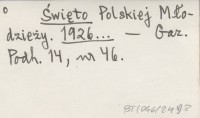 Święto Polskiej Mło-
dzieży. 1926... — Gaz.
Podh. 14, nr 46.